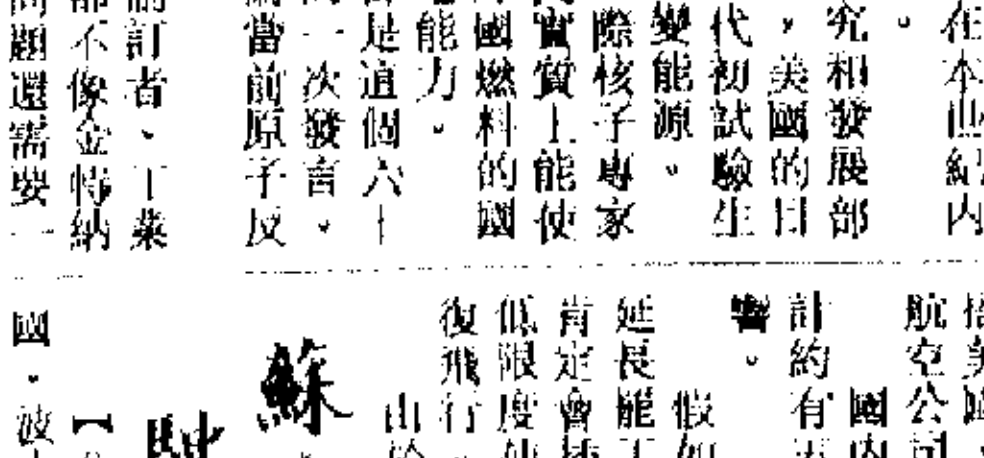 在本世紀內
。
究和發展部
，美國的目
代初試驗生
變能源。
際核子專家
實質上能使
國燃料的國
能力。
是這個六十
一次發言。
當前原子反
訂者、工業
都不像金特納
問題還需要一
美國
航空公司
國內
計約有五
響。
假如
延長罷工
肯定會
低限度使
復飛行。
由於
蘇
國。彼